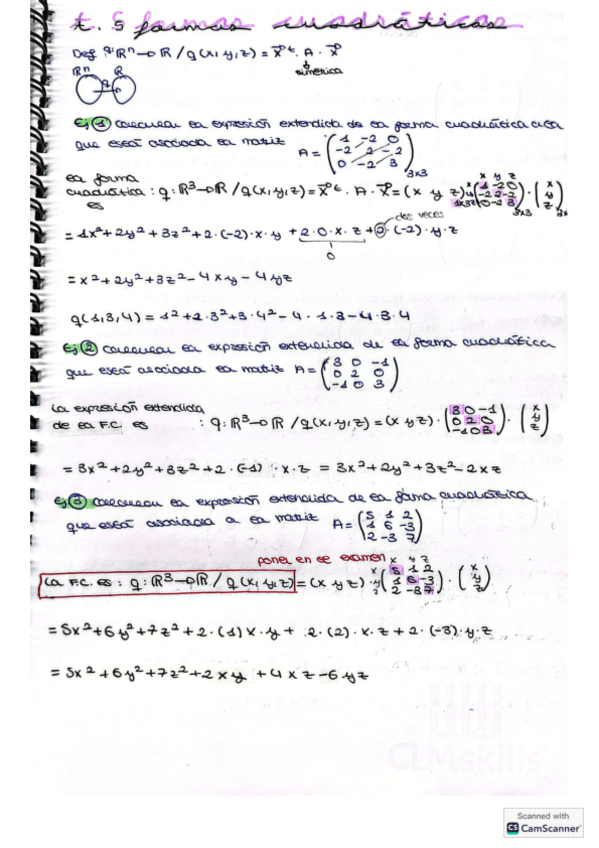 t. 5 formas cuadráticas
Def q: ℝⁿ→ℝ / q(x,y,z) = x⃗ᵗ · A · x⃗
simétrica
ℝⁿ q ℝ
Ej ① calcular la expresión extendida de la forma cuadrática
que está asociada la matriz A = (1 -2 0 / -2 2 -2 / 0 -2 3) 3x3
la forma
cuadrática : q: ℝ³→ℝ / q(x,y,z) = x⃗ᵗ · A · x⃗ = (x y z) 1x3 · (1 -2 0 / -2 2 -2 / 0 -2 3) 3x3 · (x / y / z)
es
dos veces
= 1x² + 2y² + 3z² + 2·(-2)·x·y + 2·0·x·z + 2·(-2)·y·z
0
= x² + 2y² + 3z² - 4xy - 4yz
q(1,3,4) = 1² + 2·3² + 3·4² - 4·1·3 - 4·3·4
Ej ② calcular la expresión extendida de la forma cuadrática
que está asociada la matriz A = (3 0 -1 / 0 2 0 / -1 0 3)
La expresión extendida
de la F.C. es : q: ℝ³→ℝ / q(x,y,z) = (x y z) · (3 0 -1 / 0 2 0 / -1 0 3) · (x / y / z)
= 3x² + 2y² + 3z² + 2·(-1)·x·z = 3x² + 2y² + 3z² - 2xz
Ej ③ calcular la expresión extendida de la forma cuadrática
que está asociada a la matriz A = (5 1 2 / 1 6 -3 / 2 -3 7)
poner en el examen
La F.C. es : q: ℝ³→ℝ / q(x,y,z) = (x y z) · (5 1 2 / 1 6 -3 / 2 -3 7) · (x / y / z)
= 5x² + 6y² + 7z² + 2·(1)x·y + 2·(2)·x·z + 2·(-3)·y·z
= 5x² + 6y² + 7z² + 2xy + 4xz - 6yz
CLMskills
Scanned with
CS CamScanner